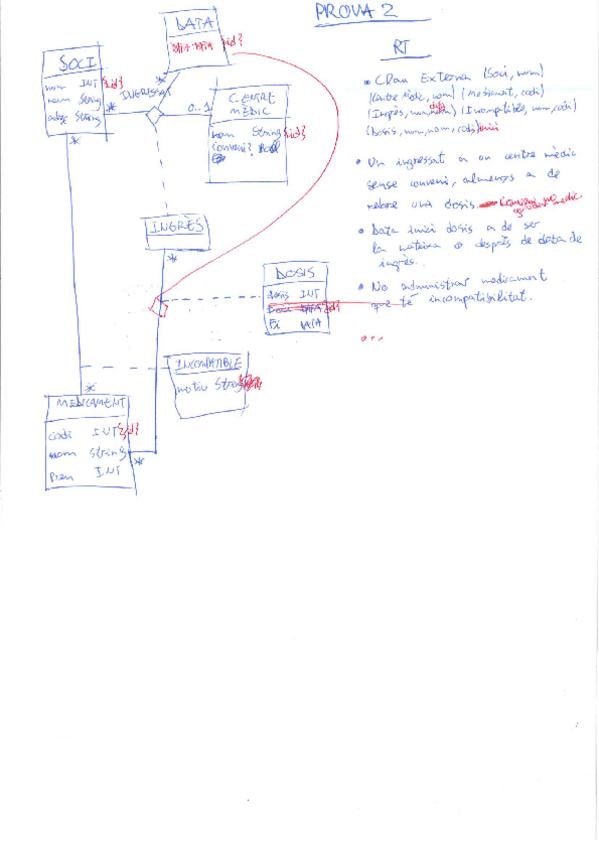 PROVA 2
DATA
data: data {id}
SOCI
num INT {id}
nom String
adreç String
*
*
*
INGRESSAT
0..1
CENTRE
MÈDIC
nom String {id}
Conveni? Bool
INGRÈS
*
DOSIS
dosis INT
Fi DATA
INCOMPATIBLE
motiu String
*
MEDICAMENT
codi INT {id}
nom String
Preu INT
*
RT
• Clau Externa (Soci, num)
(Centre Mèdic, nom) (Medicament, codi)
(Ingrès, num, data) (Incompatible, num, codi)
(Dosis, num, nom, codi) inici
• Un ingressat a un centre mèdic
sense conveni, almenys a de
rebre una dosis.
• Data inici dosis a de ser
la mateixa o desprès de data de
ingrès.
• No administrar medicament
que té incompatibilitat.
...